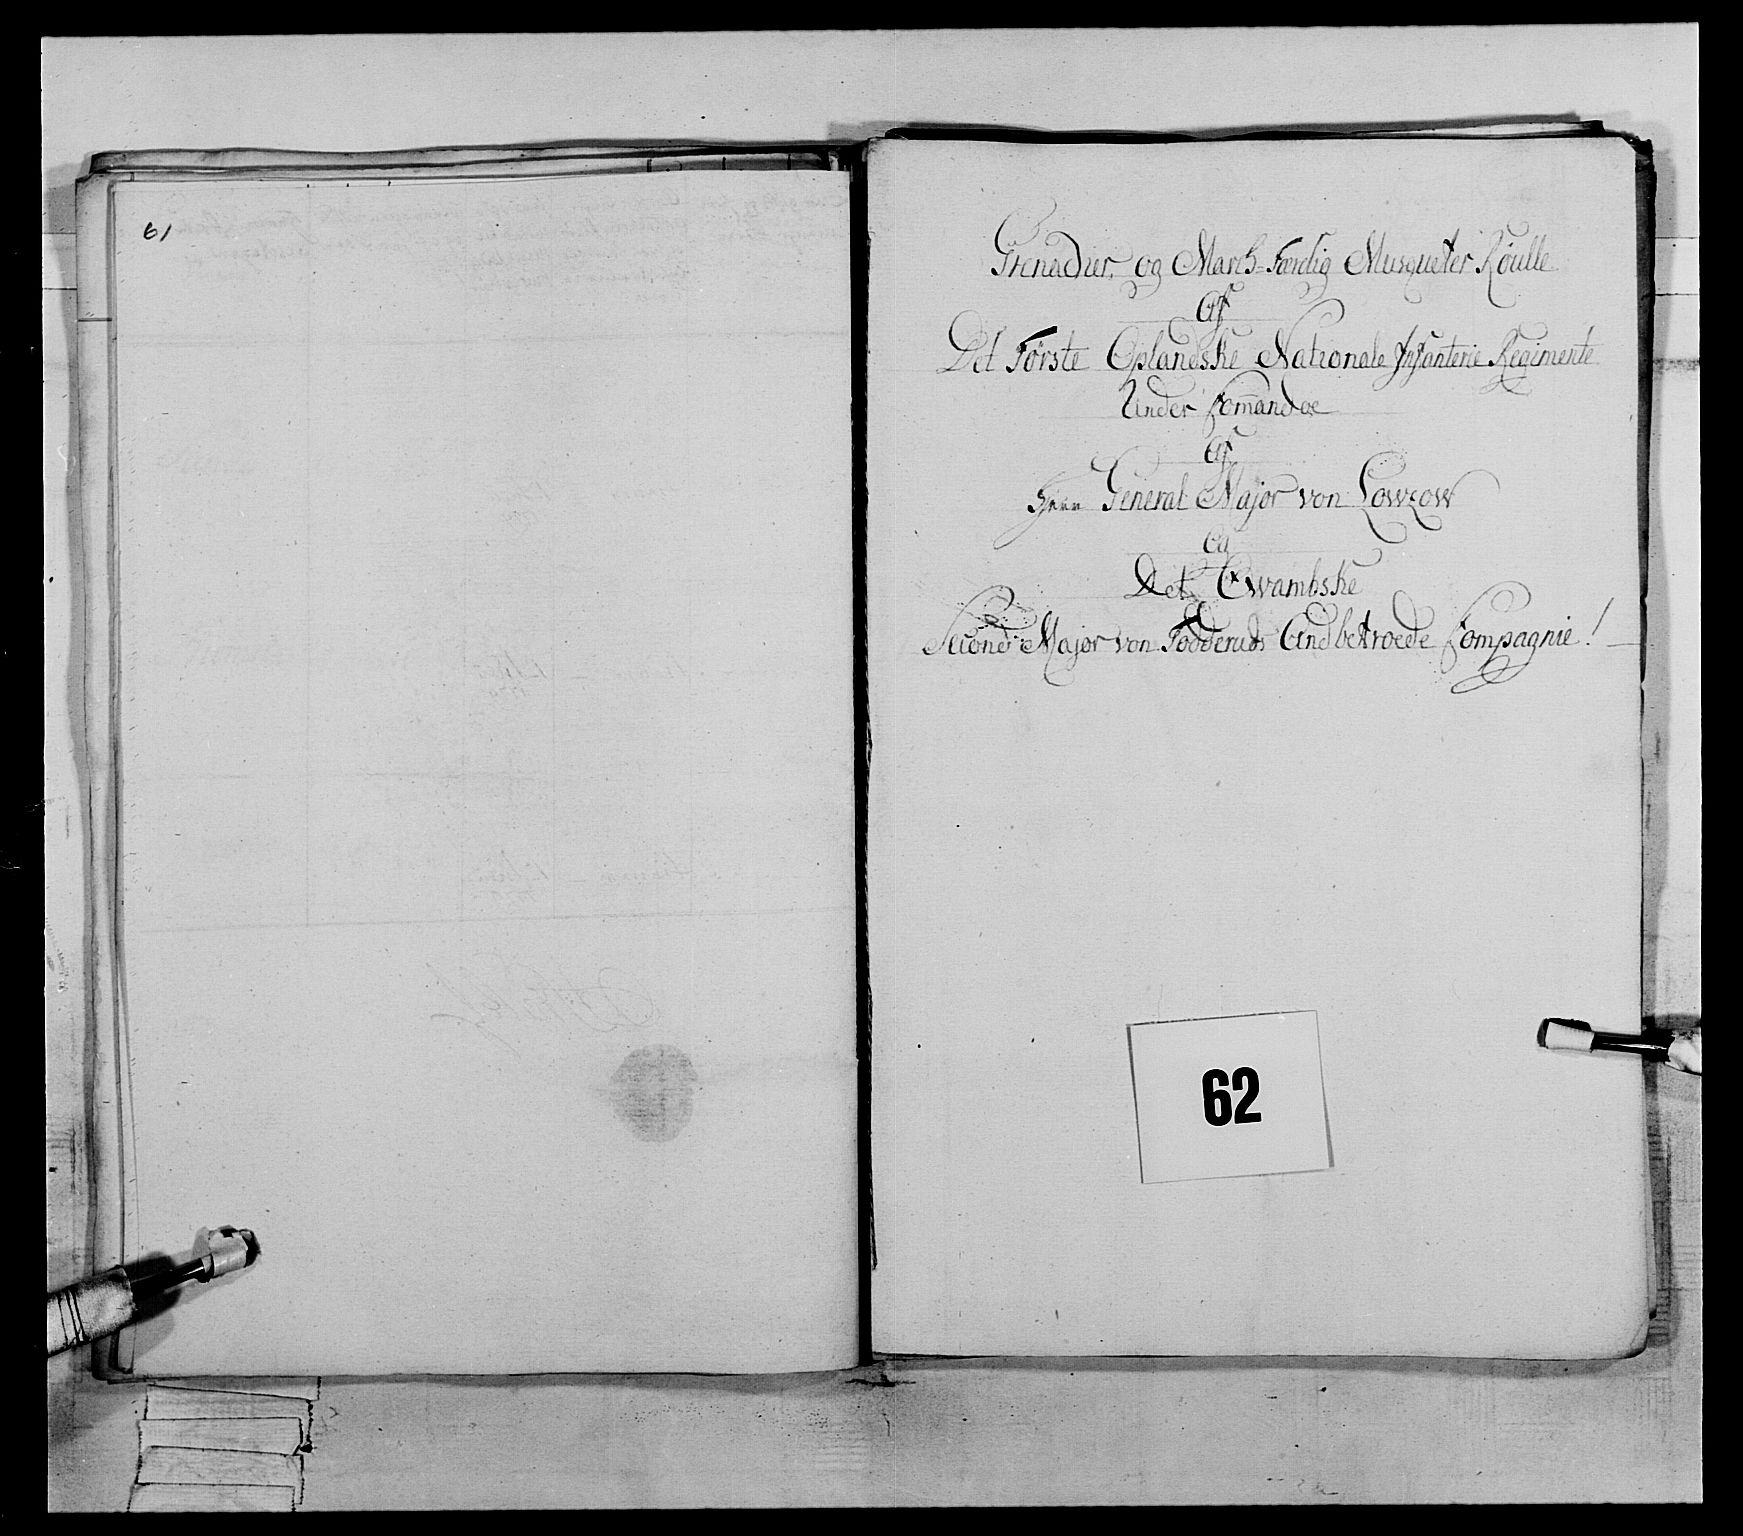 61
Grenadier, og March-Færdig Musqueter Roulle
Af
Det Første Oplandske Nationale Infanterie Regimente
Under Comandoe
Af
Herr General Major von Lowzow
Og
Det Qwambske
Second Major von Todderuds Andbetroede Compagnie!
62